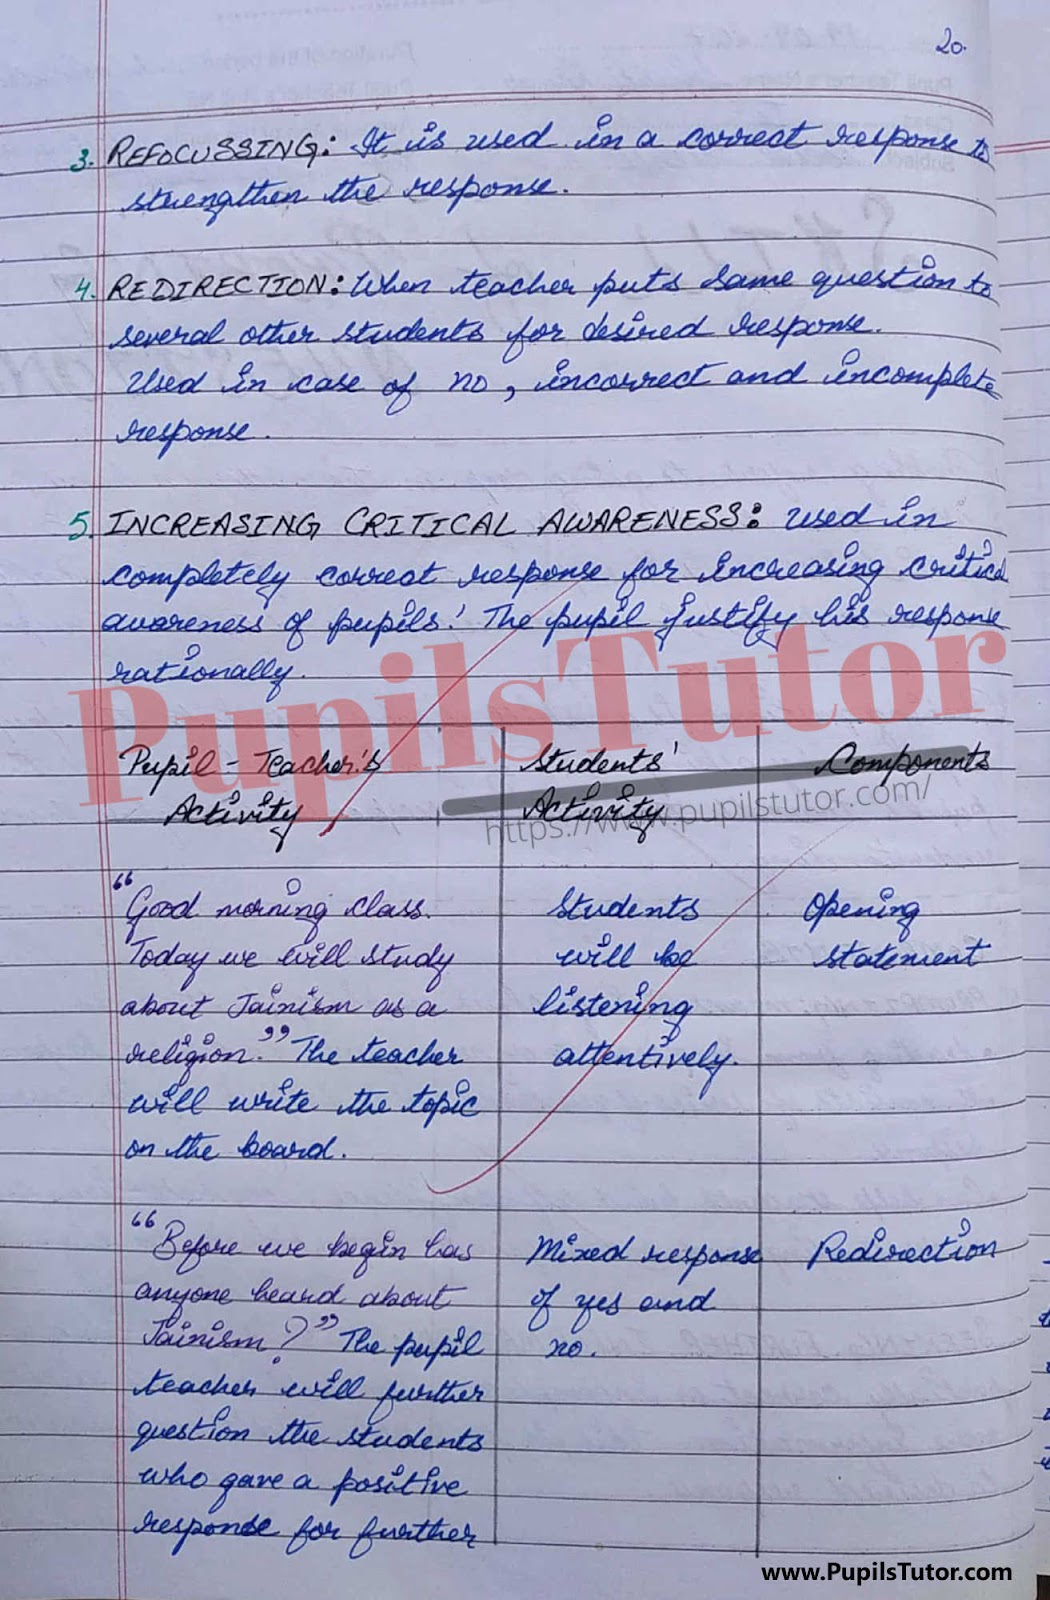 20.
3. REFOCUSSING: It is used in a correct response to
strengthen the response.
4. REDIRECTION: When teacher puts same question to
several other students for desired response.
Used in case of no, incorrect and incomplete
response.
5. INCREASING CRITICAL AWARENESS: Used in
completely correct response for increasing critical
awareness of pupils! The pupil justify his response
rationally.
PupilsTutor
https://www.pupilstutor.com/
Pupil-Teacher's
Activity
Students'
Activity
Components
"Good morning class.
Today we will study
about Jainism as a
religion." The teacher
will write the topic
on the board.
Students
will be
listening
attentively.
Opening
statement
"Before we begin has
anyone heard about
Jainism?" The pupil
teacher will further
question the students
who gave a positive
response for further
Mixed response
of yes and
no.
Redirection
www.PupilsTutor.com